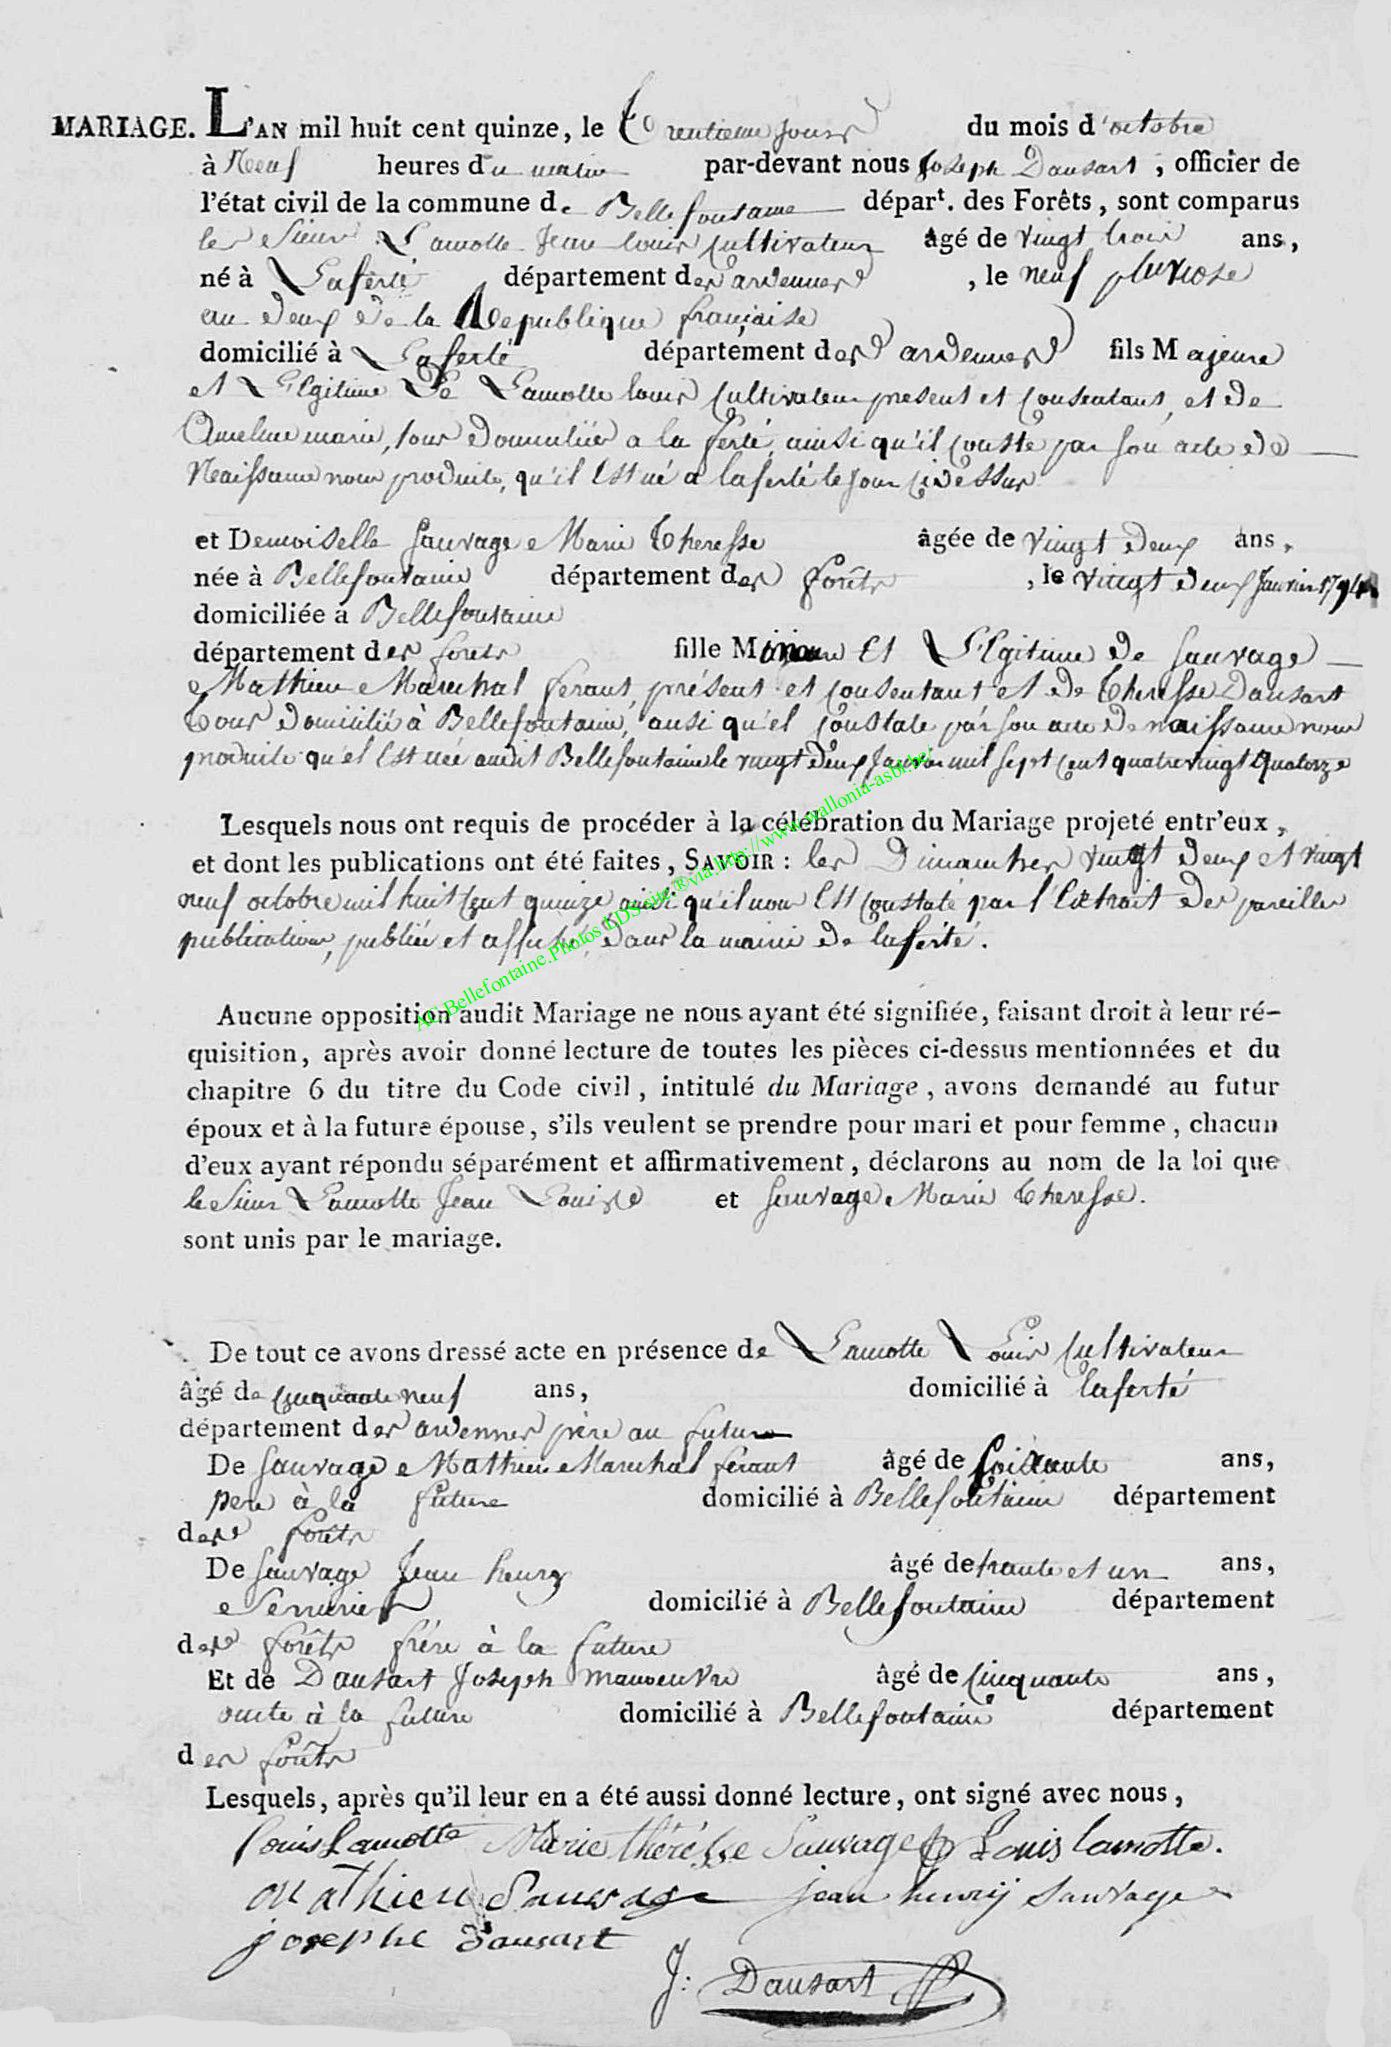 MARIAGE. L'AN mil huit cent quinze, le trentieme jour du mois d'octobre
à Neuf heures du matin par-devant nous Joseph Dausart, officier de
l'état civil de la commune de Bellefontaine départ. des Forêts, sont comparus
le Sieur Lamotte Jean Louis Cultivateur âgé de vingt trois ans,
né à Laferté département des ardennes, le neuf pluviose
an deux de la Republique française
domicilié à Laferté département des ardennes fils Majeure
et Legitime de Lamotte Louis Cultivateur present et Consentant, et de
marie, tous domiciliés a la ferté, ainsi qu'il conste par son acte de
Naissance nous produite, qu'il Est né a laferté le jour cidessus
et Demoiselle Sauvage Marie Theresse âgée de vingt deux ans,
née à Bellefontaine département des forêts, le vingt deux Janvier 1794
domiciliée à Bellefontaine
département des forets fille Mineure Et Legitime de Sauvage
Mathieu Marechal ferant, présent et consentant et de Theresse Dausart
Tous domicilié à Bellefontaine, ausi qu'el Constate par son acte de naissance nous
produite qu'el Est née audit Bellefontaine le vingt deux Janvier mil sept cent quatrevingt quatorze
Lesquels nous ont requis de procéder à la célébration du Mariage projeté entr'eux,
et dont les publications ont été faites, SAVOIR : les Dimanches vingt deux et vingt
neuf octobre mil huit cent quinze ainsi qu'il nous Est Constaté par l'Extrait des pareilles
publications, publiée et affiché, dans la mairie de laferté.
AC.Bellefontaine.Photos EDS site ® via http://www.wallonia-asbl.be/
Aucune opposition audit Mariage ne nous ayant été signifiée, faisant droit à leur ré-
quisition, après avoir donné lecture de toutes les pièces ci-dessus mentionnées et du
chapitre 6 du titre du Code civil, intitulé du Mariage, avons demandé au futur
époux et à la future épouse, s'ils veulent se prendre pour mari et pour femme, chacun
d'eux ayant répondu séparément et affirmativement, déclarons au nom de la loi que
le Sieur Lamotte Jean Louis et Sauvage Marie Theresse.
sont unis par le mariage.
De tout ce avons dressé acte en présence de Lamotte Louis Cultivateur
âgé de cinquante neuf ans, domicilié à laferté
département des ardennes père au futur
De Sauvage Mathieu Marechal ferant âgé de soixante ans,
pere à la future domicilié à Bellefontaine département
des forêts
De Sauvage Jean henry âgé de trante et un ans,
Serrurier domicilié à Bellefontaine département
des forêts frére à la future
Et de Dausart Joseph manoeuvre âgé de cinquante ans,
oncle à la future domicilié à Bellefontaine département
des forêts
Lesquels, après qu'il leur en a été aussi donné lecture, ont signé avec nous,
Louis Lamotte Marie thérésse Sauvage Louis lamotte.
Mathieu Sauvage jean henry Sauvage
josephe dausart
J: Dausart